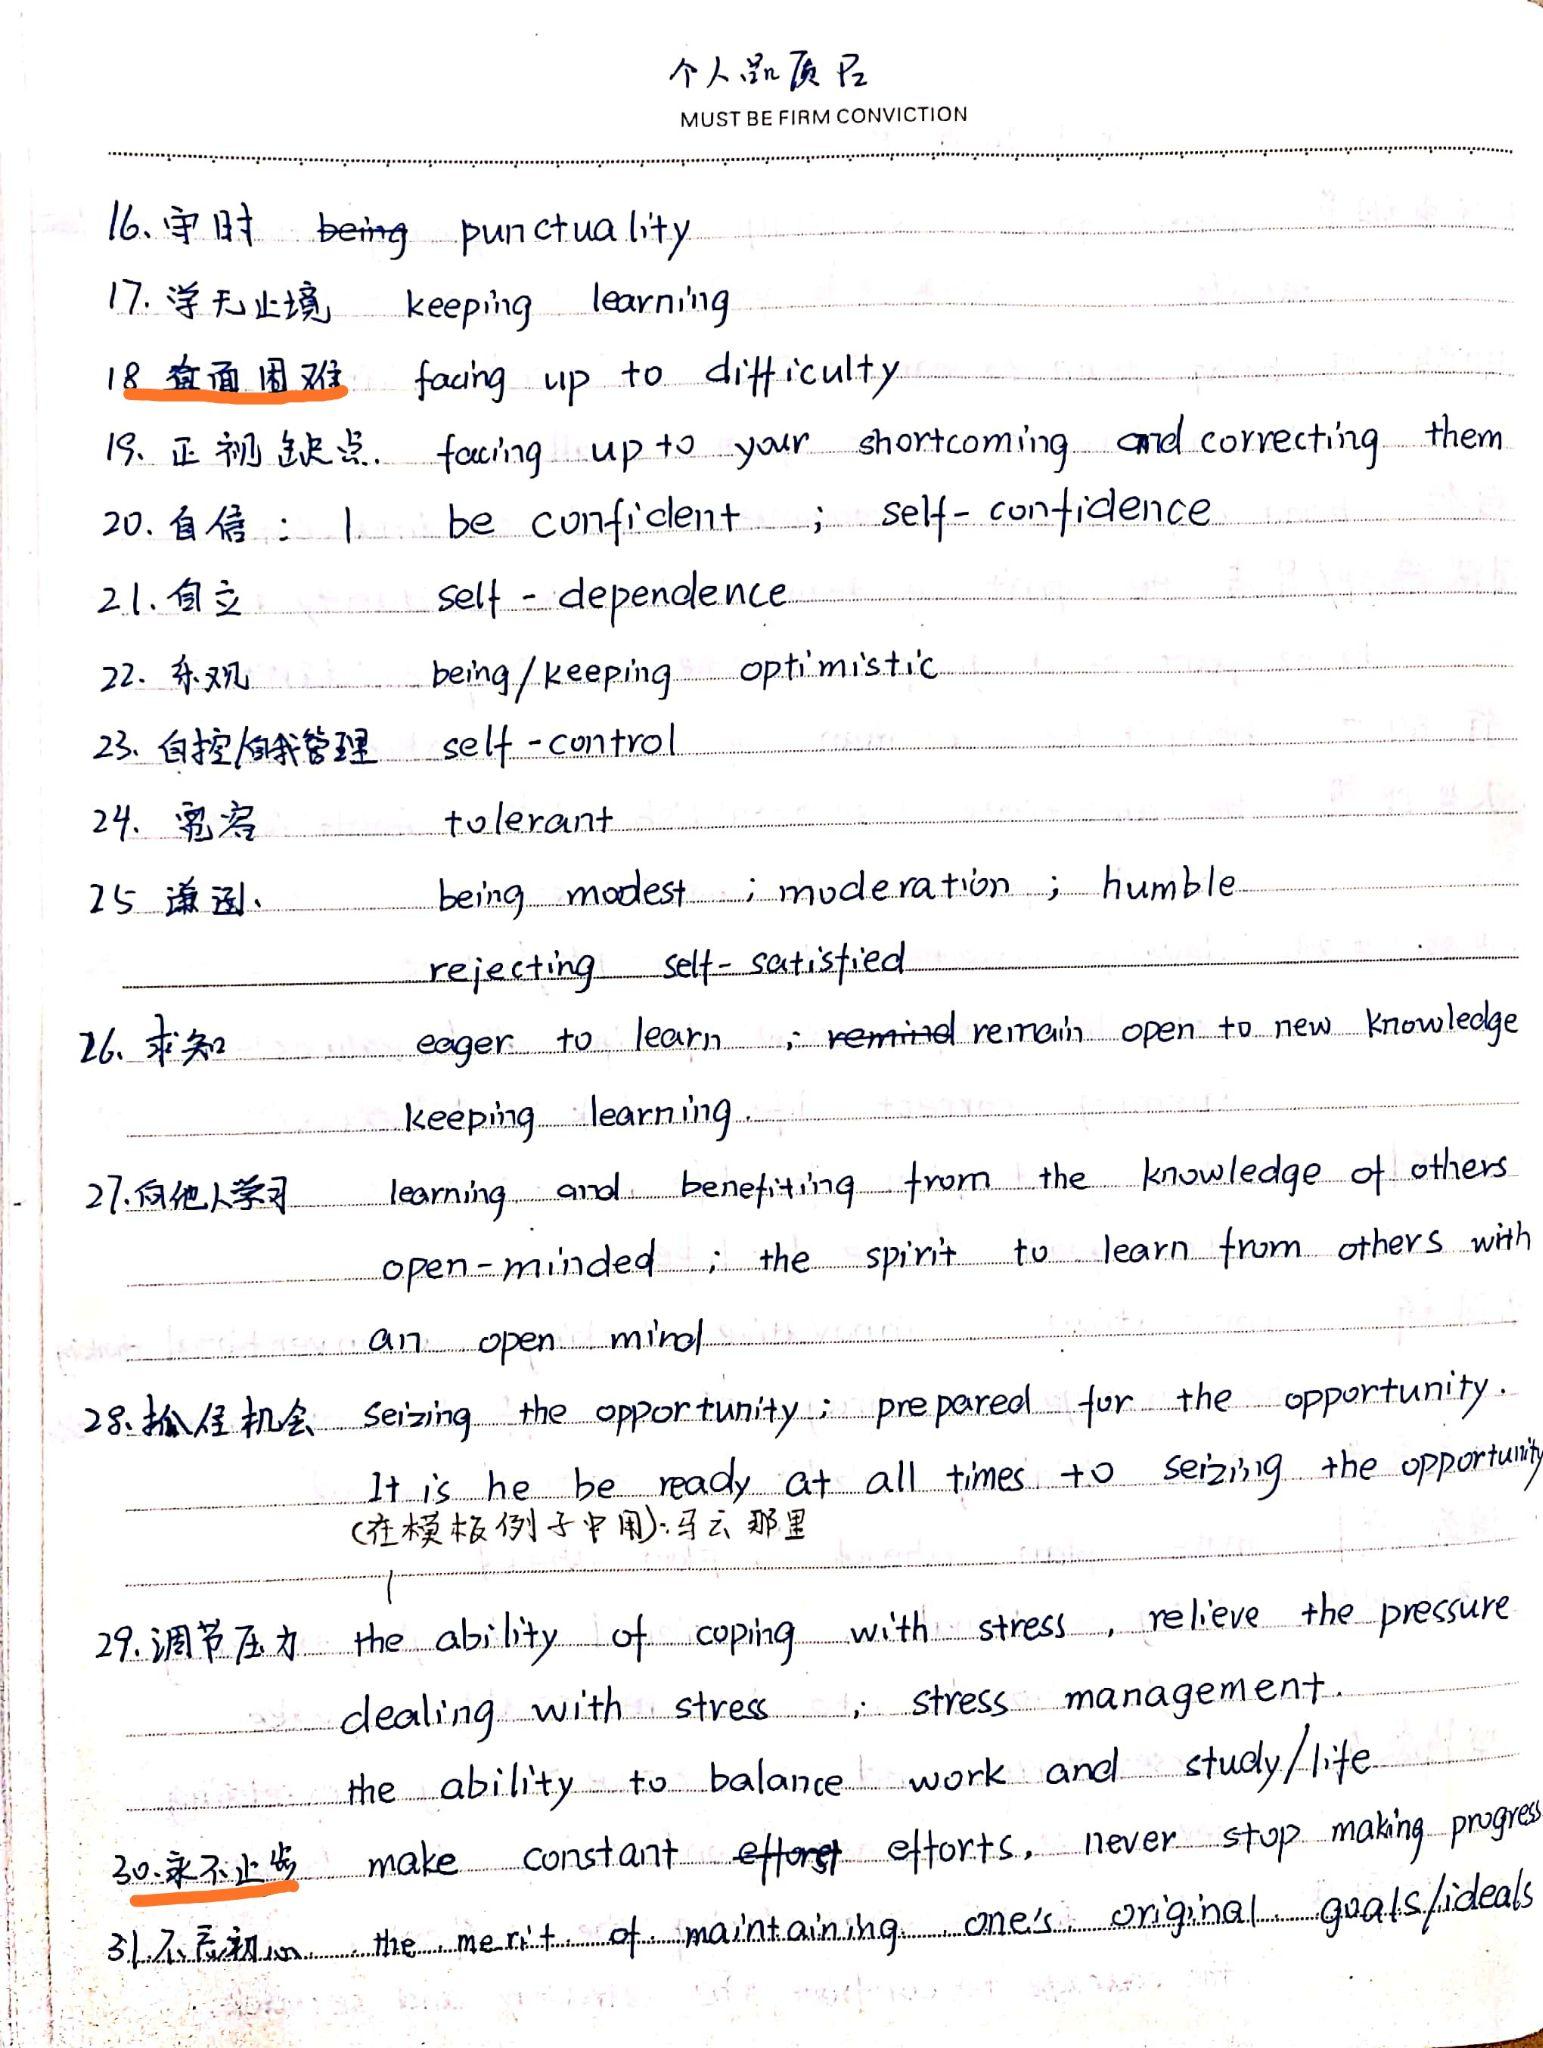 个人品质P2
MUST BE FIRM CONVICTION
16. 守时 being punctuality
17. 学无止境 keeping learning
18 直面困难 facing up to difficulty
19. 正视缺点. facing up to your shortcoming and correcting them
20. 自信: be confident ; self-confidence
21. 自立 self-dependence
22. 乐观 being/keeping optimistic
23. 自控/自我管理 self-control
24. 宽容 tolerant
25 谦逊. being modest ; moderation ; humble
rejecting self-satisfied
26. 求知 eager to learn ; remind remain open to new knowledge
keeping learning.
27. 向他人学习 learning and benefiting from the knowledge of others
open-minded ; the spirit to learn from others with
an open mind
28. 抓住机会 seizing the opportunity; prepared for the opportunity.
It is he be ready at all times to seizing the opportunity
(在模板例子中用): 马云那里
29. 调节压力 the ability of coping with stress, relieve the pressure
dealing with stress ; stress management.
the ability to balance work and study/life
30. 永不止步 make constant efforts, never stop making progress
31. 不忘初心 the merit of maintaining one's original goals/ideals